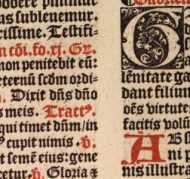 odere p
us subleuemur.
rissime. Testifi-
tõi. fo. xj. Gr.
non penitebit eũ:
eternũ scdm ordi-
. Dixit dñs dño
s meis. Tract⁹.
qui timet dũm/in
cupit nimis. ꝟ.
t semẽ eius: gene
cetur. ꝟ. Gloria ⁊
G
lẽnitate ga
dant filium
oẽs virtute
tacitis volũ
A
ni
nis illustr